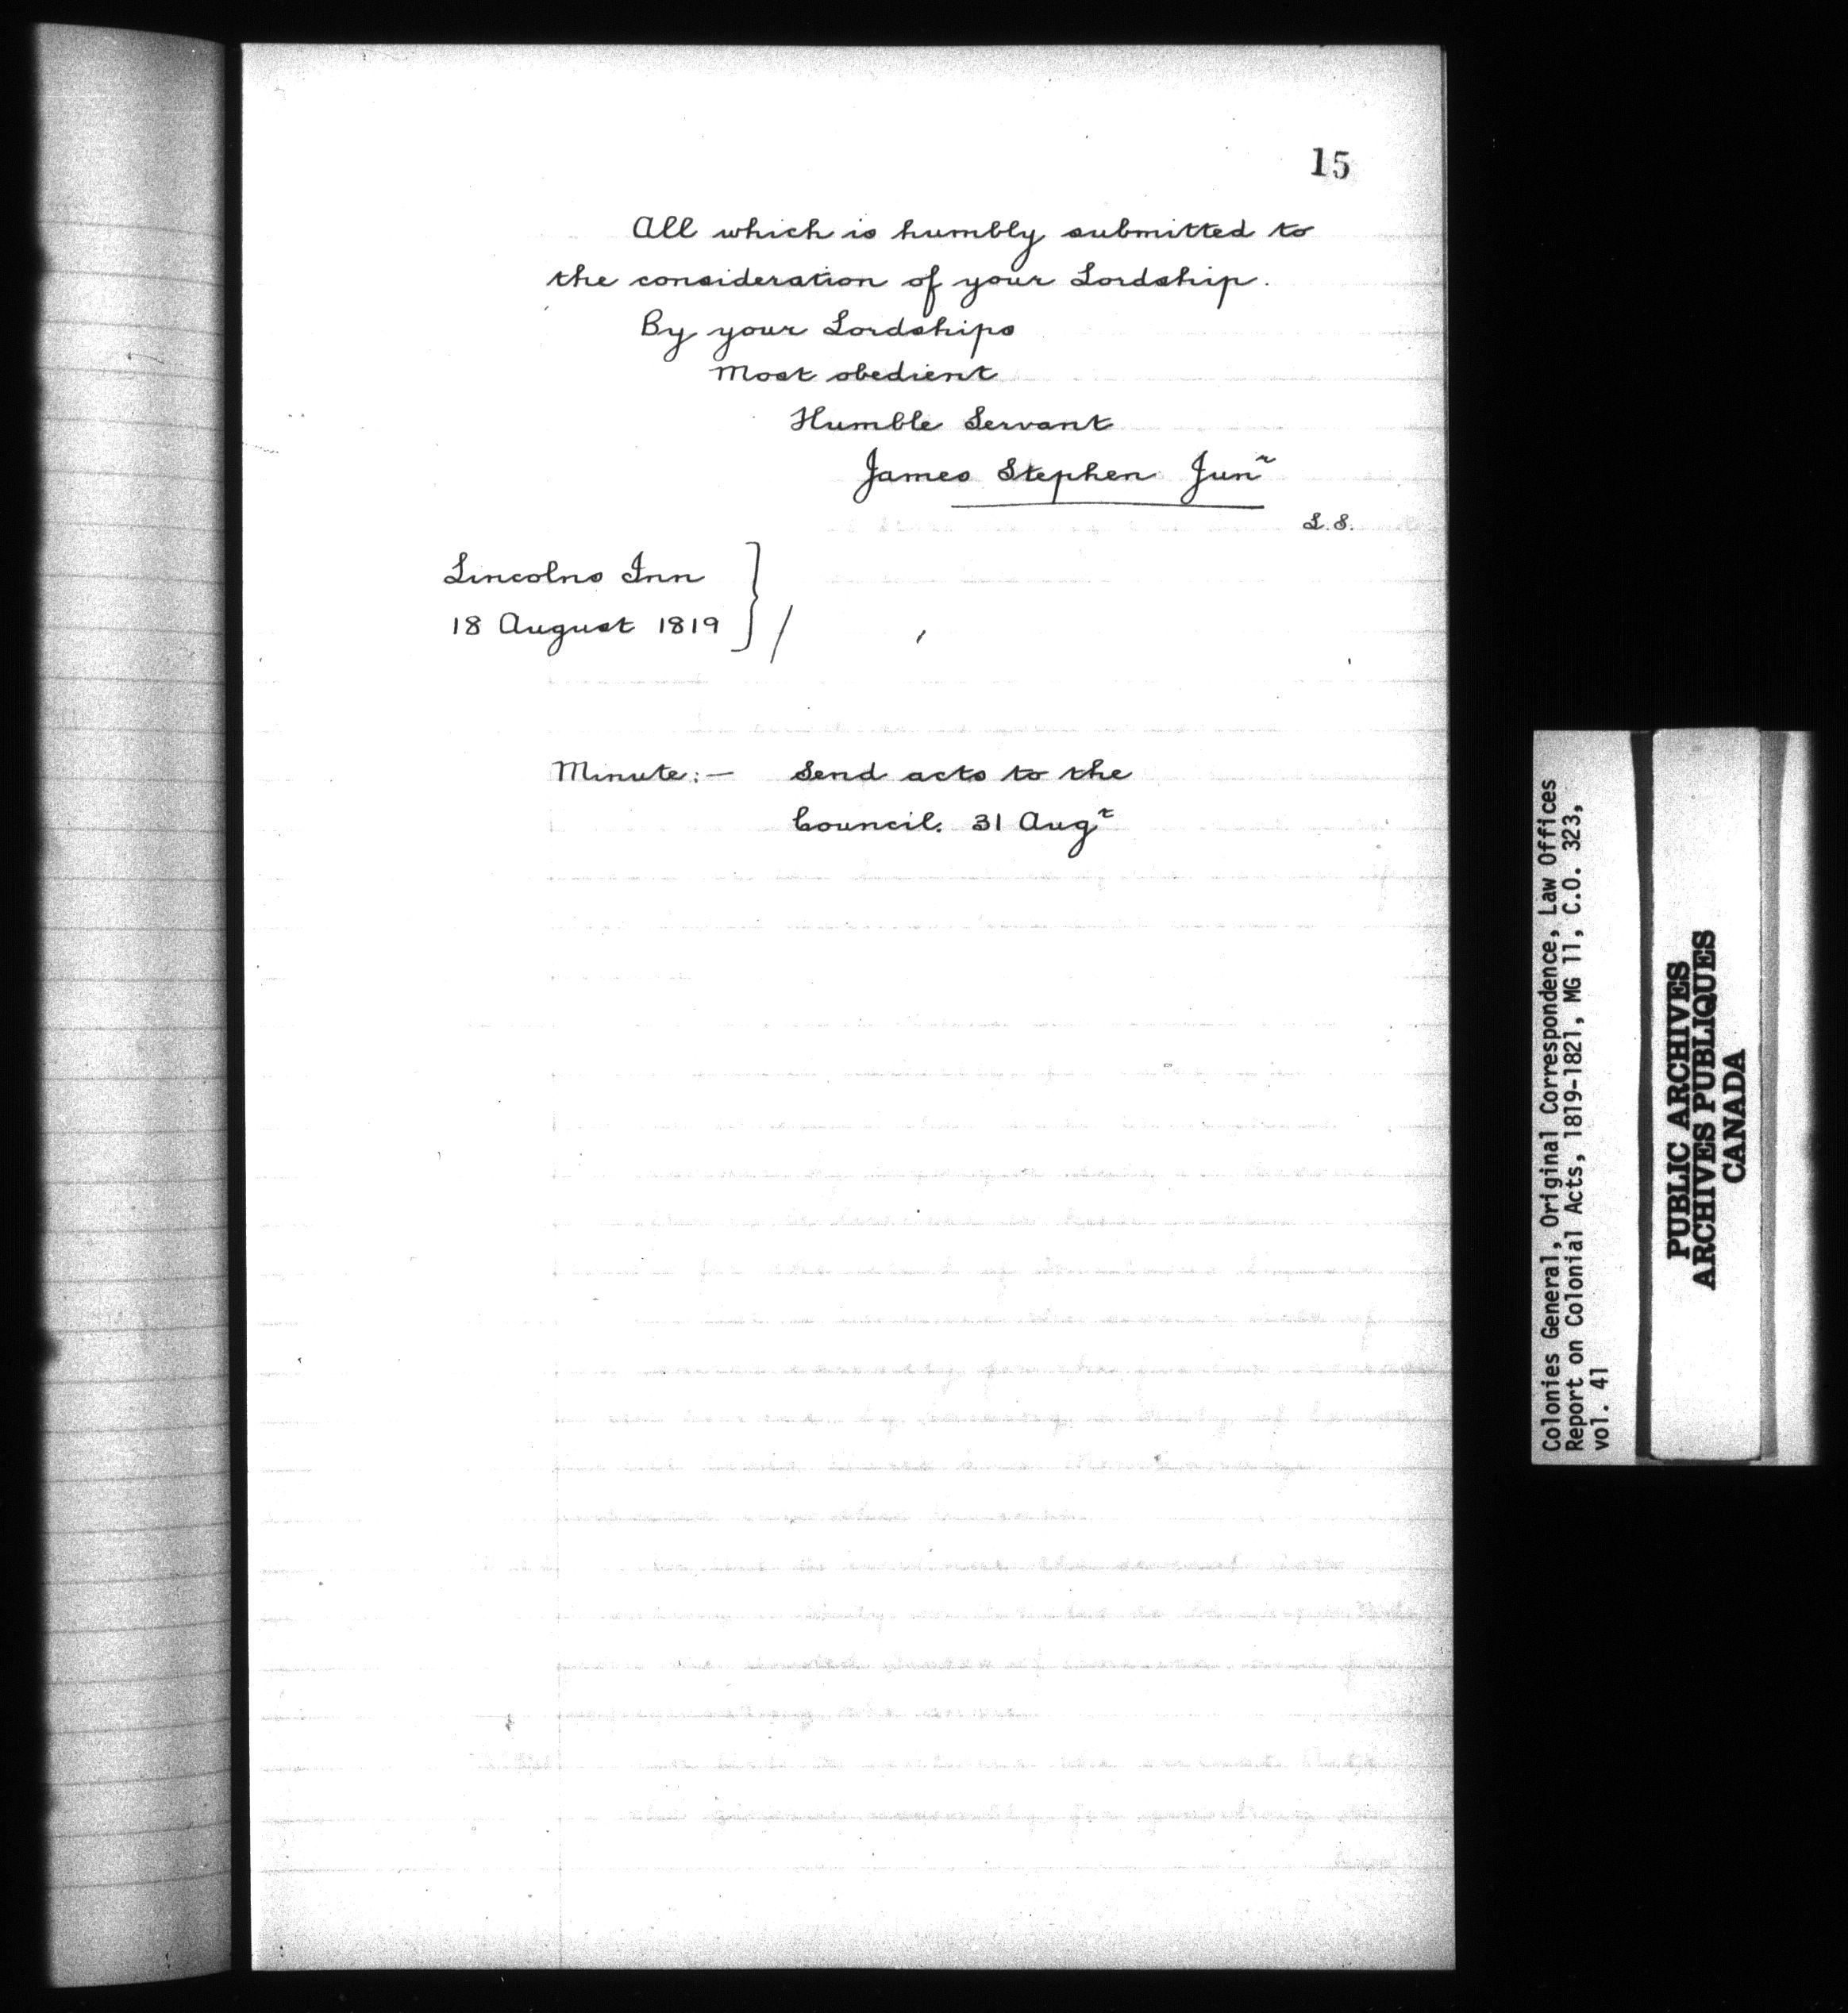 15
All which is humbly submitted to
the consideration of your Lordship.
By your Lordships
Most obedient
Humble Servant
James Stephen Junr
L.S.
Lincolns Inn
18 August 1819
Minute:— Send acts to the
Council. 31 Augt
Colonies General, Original Correspondence, Law Offices
Report on Colonial Acts, 1819-1821, MG 11, C.O. 323,
vol. 41
PUBLIC ARCHIVES
ARCHIVES PUBLIQUES
CANADA